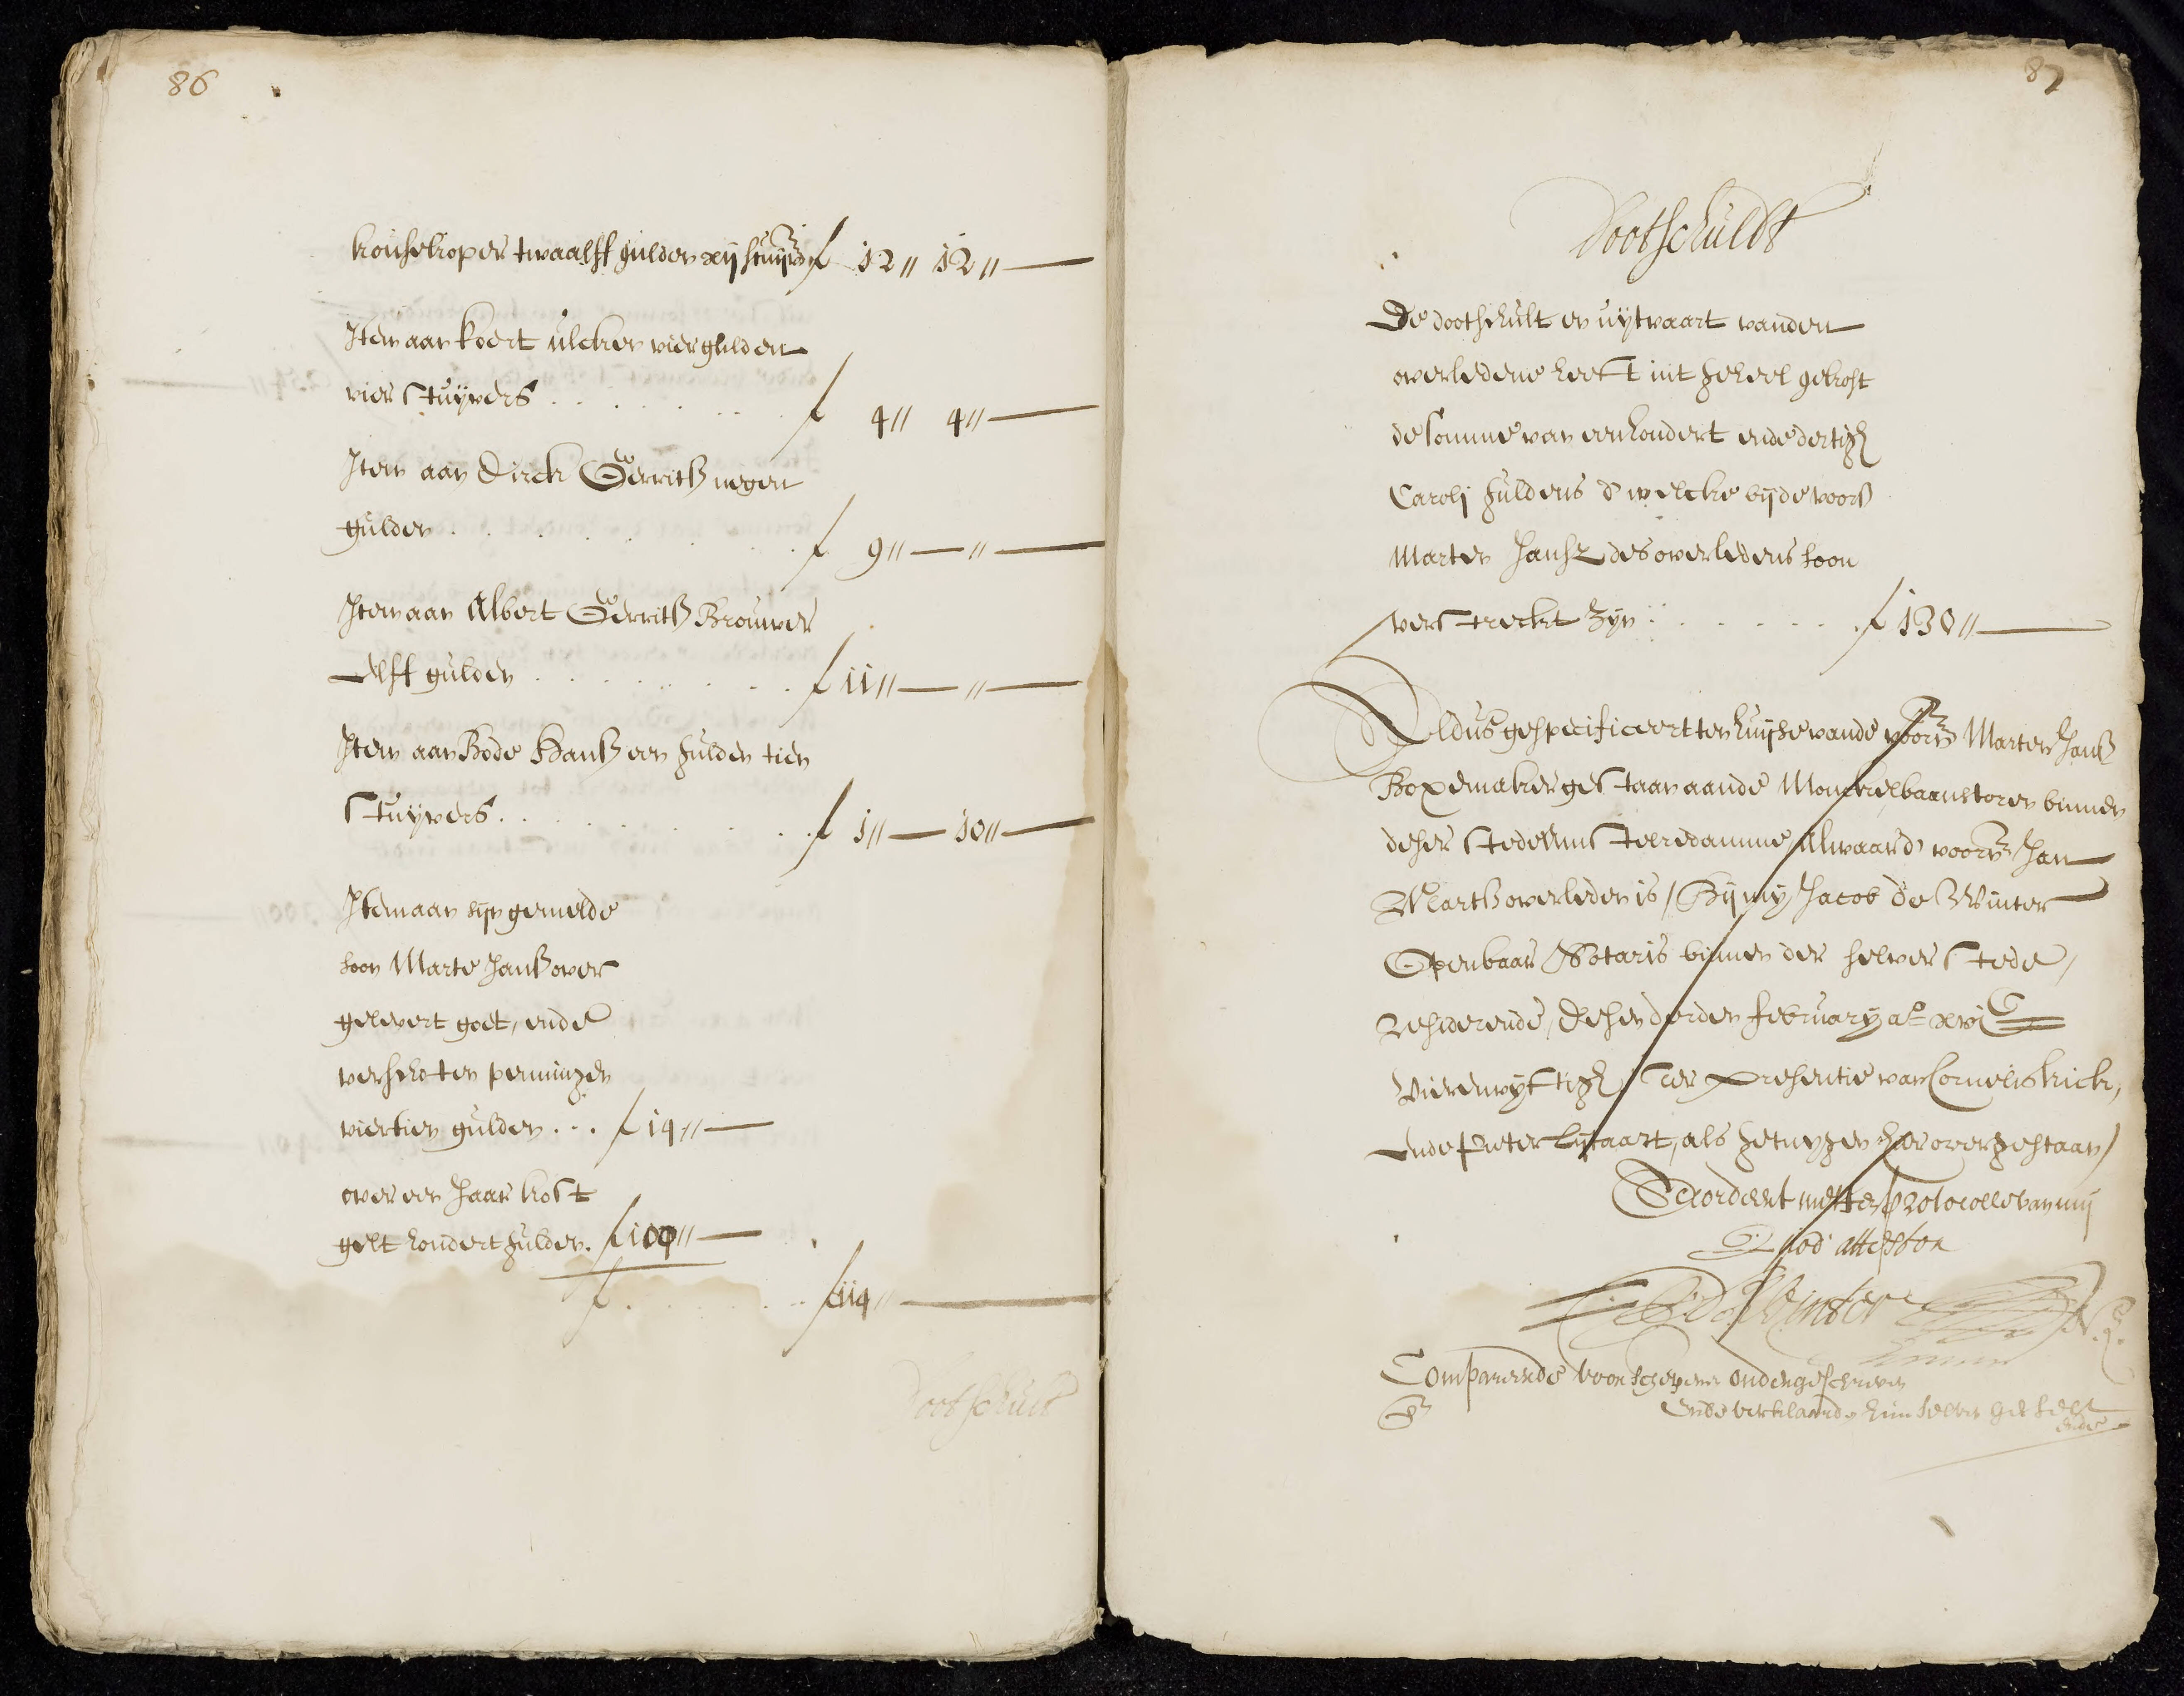 86
kousekoper twaalff gulden xij stuijvers f 12 // 12 // —
Item aan Koert ulcken vier gulden
vier stuijvers . . . . . . . f 4 // 4 // —
Item aan Dirck Gerritß negen
gulden . . . . . . . f 9 // — // —
Item aan Albert Gerritß Brouwer
Elff gulden . . . . . . . f 11 // — // —
Item aan Bode Hanß een gulden tien
stuijvers . . . . . . . f 1 // — 10 // —
Item aan sijn gemelde
soon Marte Janß over
gelevert goet, ende
verschoten penningen
viertien gulden . . . f 14 // —
over een Jaar kost
gelt hondert gulden . f 100 // —
f . . . . . . . f 114 // —
Dootschult
87
Dootschuldt
De dootschult en uijtvaart vanden
overledene heeft int geheel gekost
de somme van een hondert ende dertigh
Caroli guldens d'welcke bij de voors
Marten Jansz des overledens soon
verstreckt zijn . . . . . . . f 130 // —
Aldus gespecificeert ten huijse vande voorn Marten Janß
Boxemaker gestaan aande Monckelbaanstoren binnen
deser stede Amstelredamme Alwaar d' voorn Jan
Martß overleden is / Bij mij Jacob de Winter
Openbaar Notaris binnen der selver stede /
Residerende, desen derden february ao xvi C
Vierenvijftigh / Ter presentie van Cornelis kick,
ende Pieter Lijtaart, als getuygen hier over gestaan /
Accordeert mette prothocolle van mij
Quod attestor
J De Winter
Comparerende voor Schepenen ondergeschreven
Ende verklaarde hun selven
ende